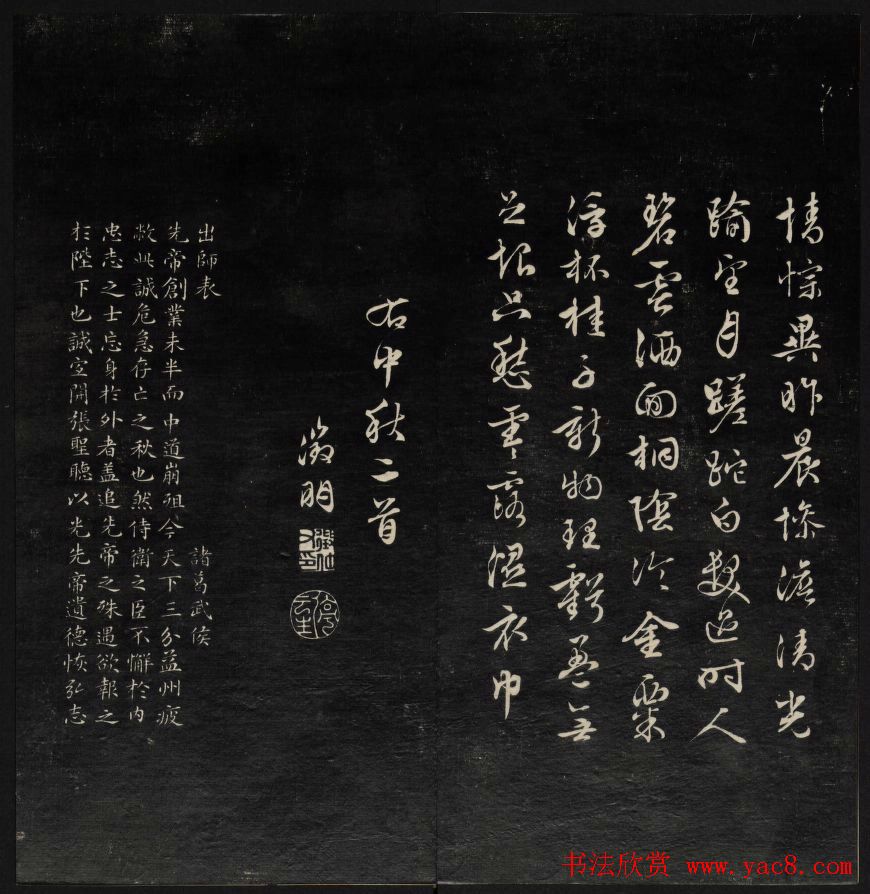 情悰異昨晨惨澹清光
踰望月蹉跎白髮過時人
碧雲洒面桐陰冷金粟
浮杯桂子新物理虧盈無
足恨只愁零露濕衣巾
右中秋二首
徵明
停雲生
出師表 諸葛武侯
先帝創業未半而中道崩殂今天下三分益州疲
敝此誠危急存亡之秋也然侍衛之臣不懈於內
忠志之士忘身於外者蓋追先帝之殊遇欲報之
於陛下也誠宜開張聖聽以光先帝遺德恢弘志
书法欣赏 www.yac8.com